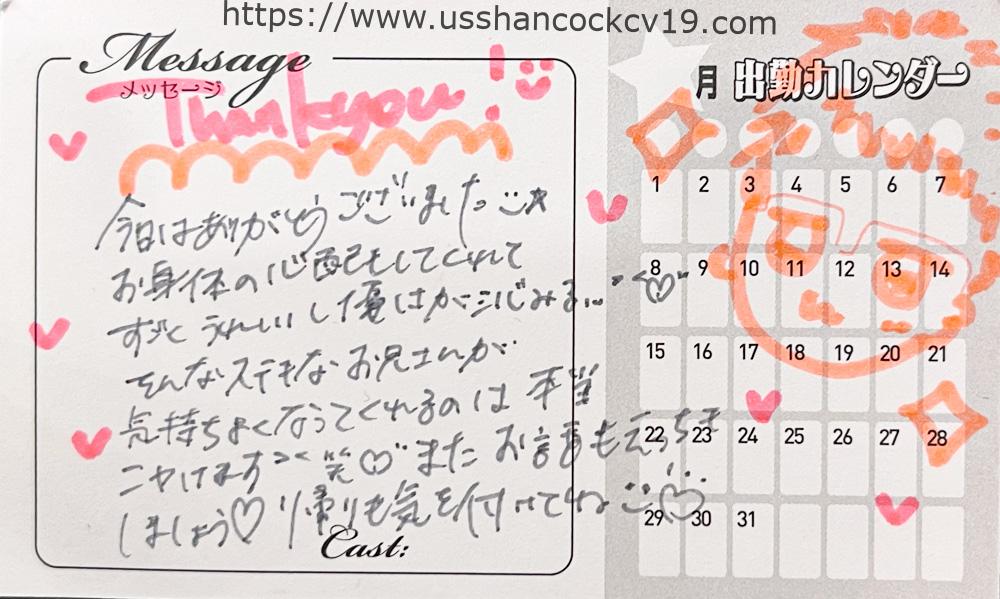 https://www.usshancockcv19.com
Message
メッセージ
Thankyou!
今日はありがとうございました
お身体の心配もしてくれて
すごくうれしいし優しさが染みる...
そんなステキなお兄さんが
気持ちよくなってくれるのは本当
ニヤけます>< 笑 また お話もえっちも
しましょう 帰りも気を付けてね
Cast:
月 出勤カレンダー
1 2 3 4 5 6 7
8 9 10 11 12 13 14
15 16 17 18 19 20 21
22 23 24 25 26 27 28
29 30 31